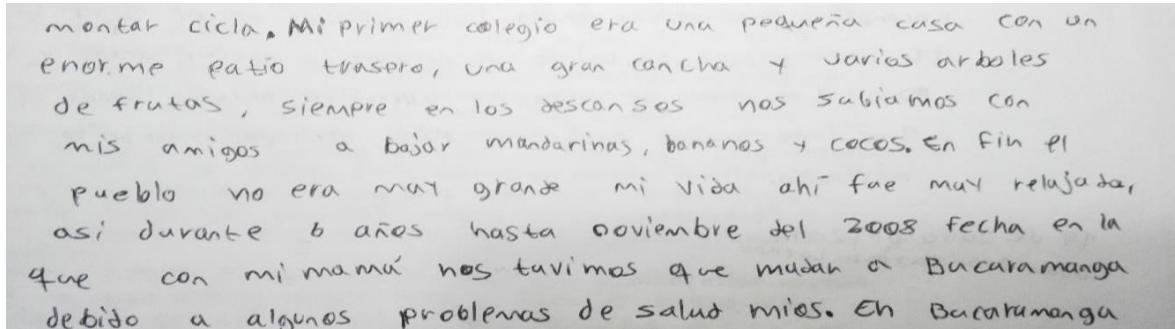 montar cicla. Mi primer colegio era una pequeña casa con un
enorme patio trasero, una gran cancha y varios arboles
de frutas, siempre en los descansos nos subiamos con
mis amigos a bajar mandarinas, bananos y cocos. En fin el
pueblo no era muy grande mi vida ahí fue muy relajada,
asi durante 6 años hasta noviembre del 2008 fecha en la
que con mi mamá nos tuvimos que mudan a Bucaramanga
debido a algunos problemas de salud mios. En Bucaramanga